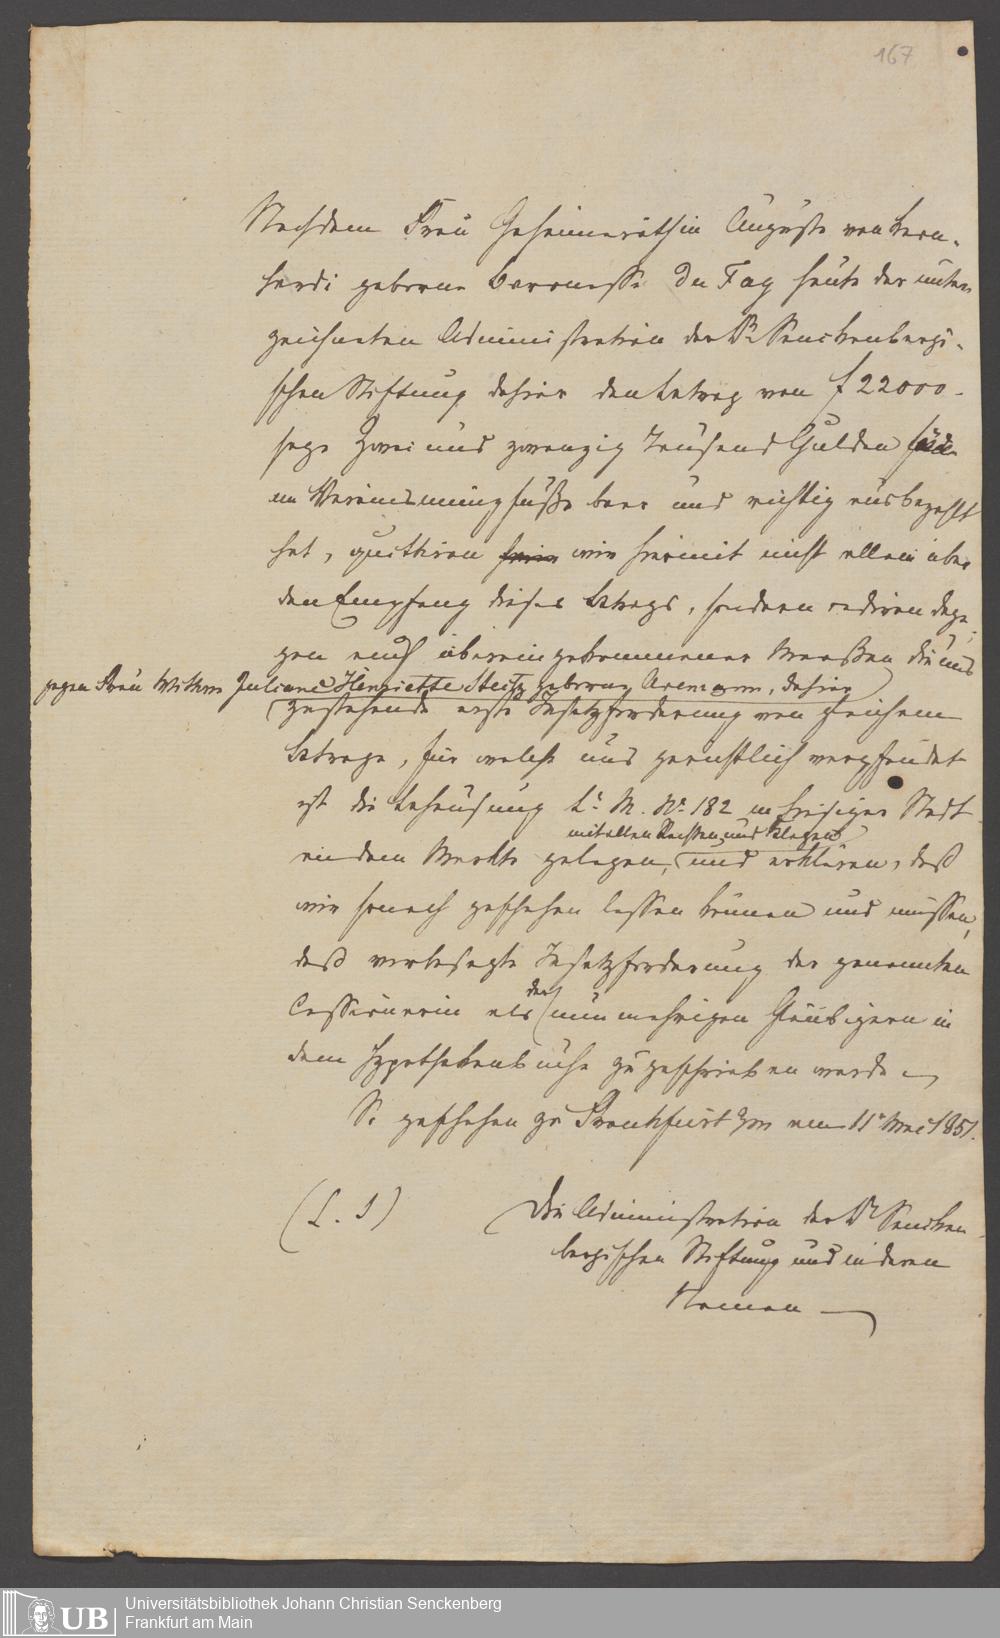 167
Nachdem Frau Geheimeräthin Auguste von Bern-
hardi geborne Baronesse Du Fay heute der unter
zeichneten Administration der Dr Senckenbergi-
schen Stiftung dahier den Betrag von f 22000 -
sage Zwei und zwanzig Tausend Gulden
im Vereinsmünzfuße baar und richtig ausbezahlt
hat, quittiren wir hiermit nicht allein über
den Empfang dieses Betrags, sondern cediren dage-
gen auch übereingekommener Maaßen die uns
gegen Frau Wittwe Juliane Henriette Steitz geborne Aremann, dahier
zustehende erste Insatzforderung von gleichem
Betrage, für welche uns gerichtlich verpfändet
ist die Behausung Lr. M. No. 182 in hiesiger Stadt
mit allen Rechten und Klagen
an dem Markte gelegen, und erklären, daß
wir sonach geschehen lassen können und müssen,
daß vorbesagte Insatzforderung der genannten
der
Cessionarin als nunmehrigen Gläubigerin in
dem Hypothekenbuche zugeschrieben werde.
So geschehen zu Frankfurt a/m am 11n Mai 1851.
(L. S)
Die Administration der Dr Sencken
bergischen Stiftung und in deren
Namen
UB
Universitätsbibliothek Johann Christian Senckenberg
Frankfurt am Main